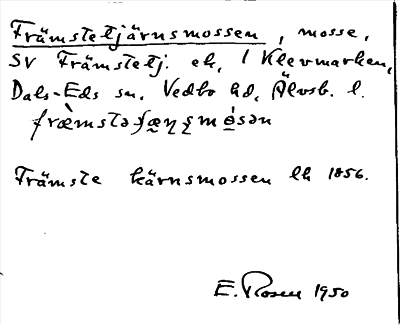 Främstetjärnsmossen, mosse,
SV Främstetj. ek, 1 Klevmarken,
Dals-Eds sn. Vedbo hd, Älvsb. l.
Främste kärnsmossen lk 1856.
E. Rosen 1950